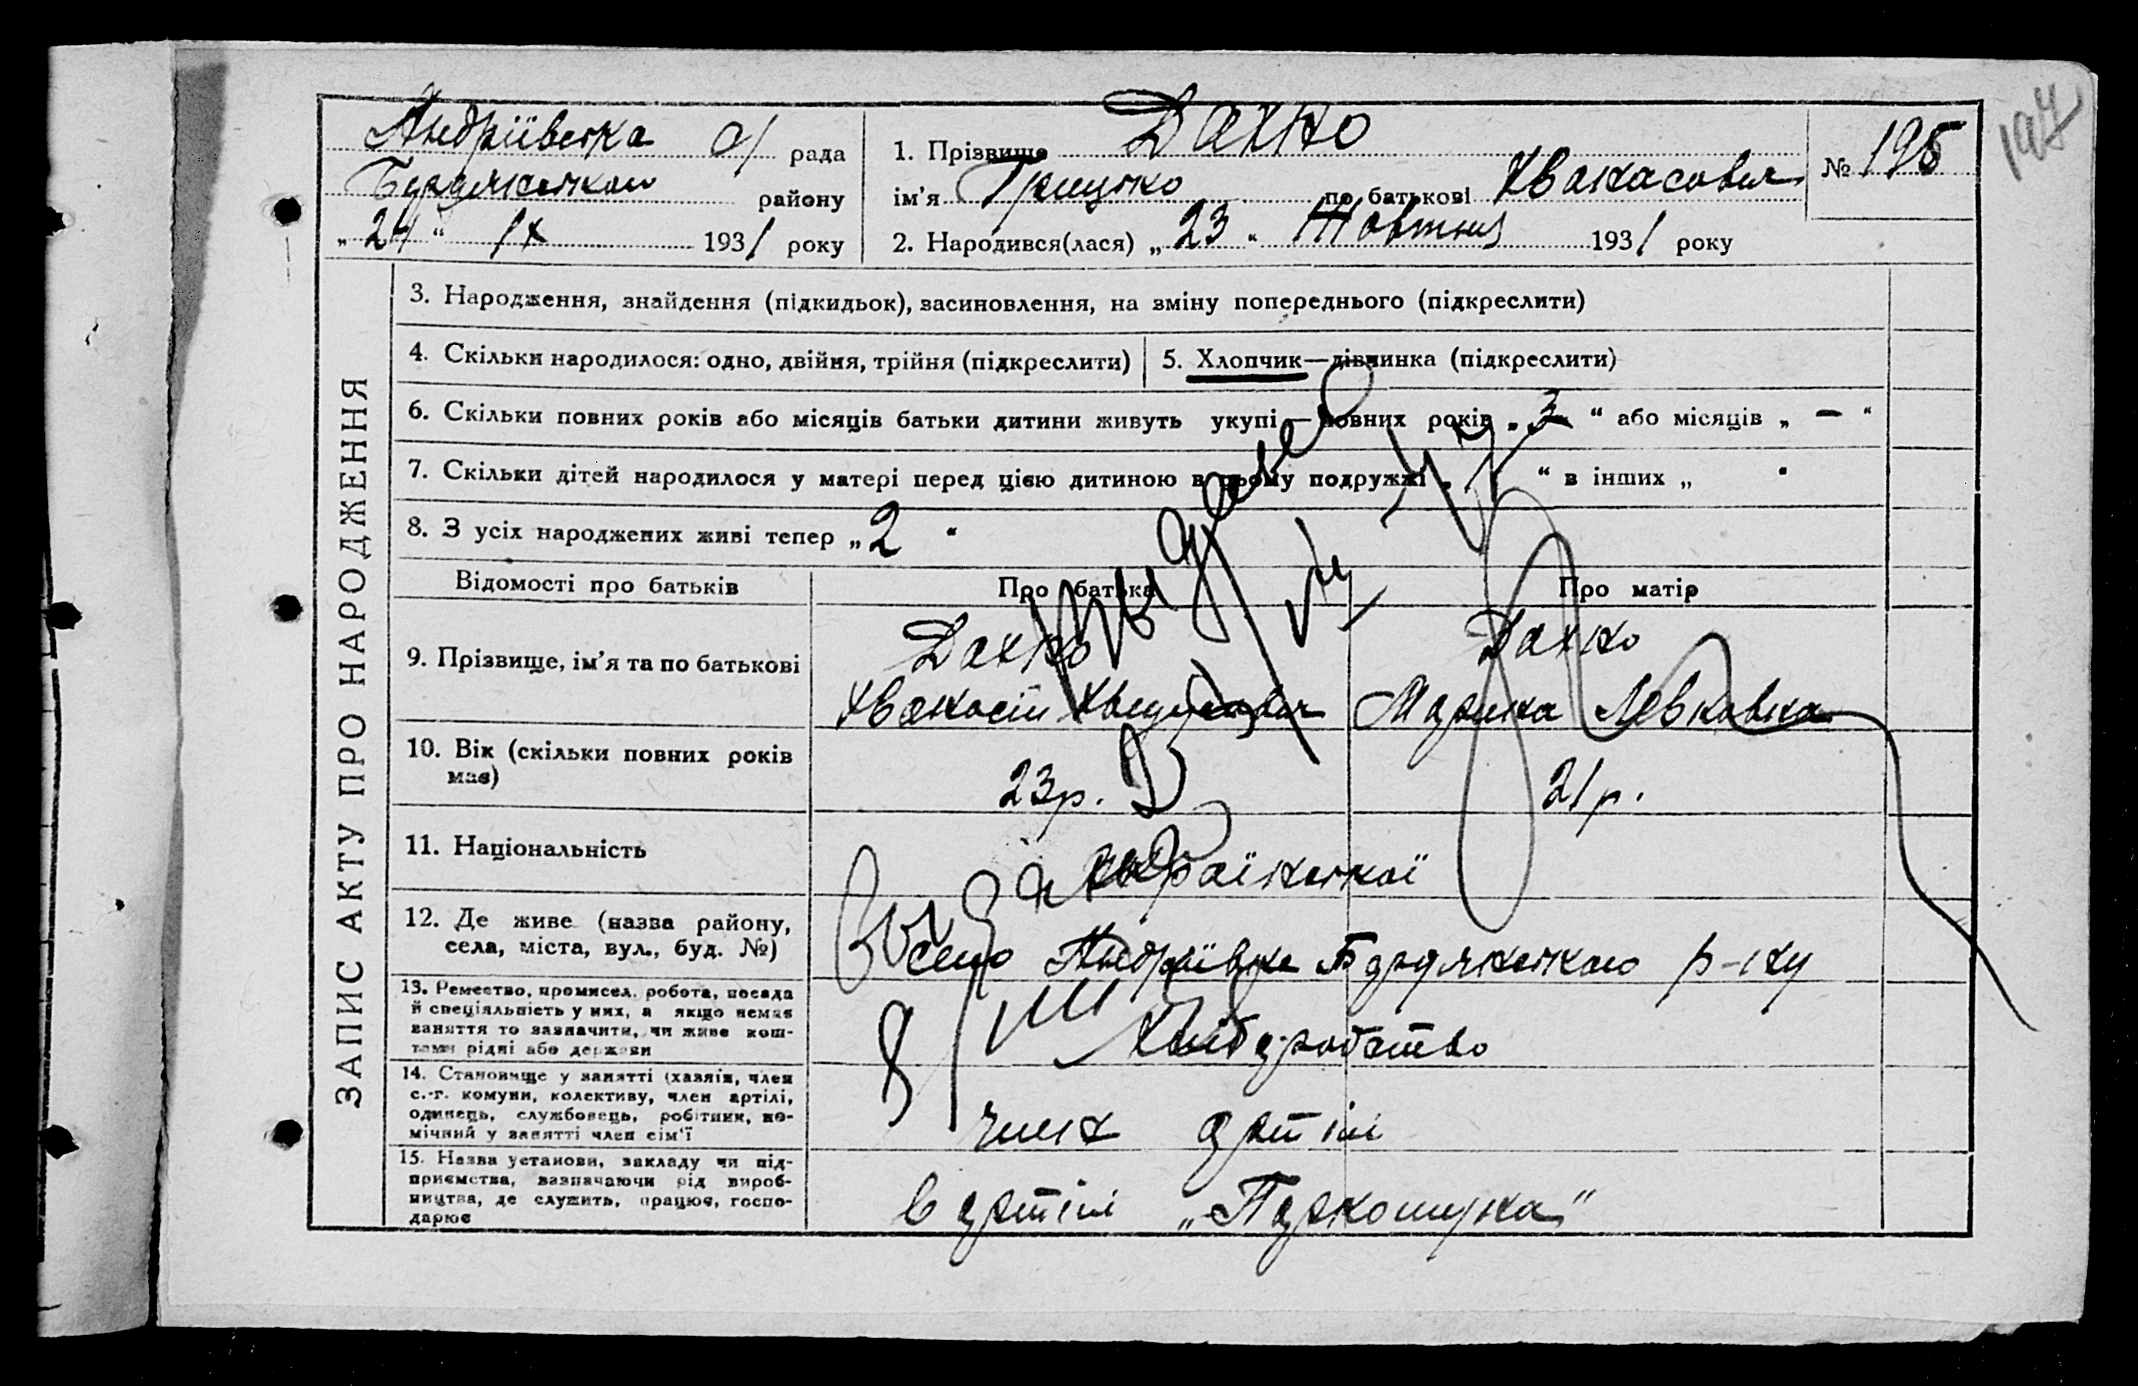 Андріївська с/ рада
Бердянського району
„24“ ІХ 1931 року
1. Прізвище Дахно
ім’я Грицько по батькові
№ 195
197
2. Народився(лася) „23“ Жовтня 1931 року
ЗАПИС АКТУ ПРО НАРОДЖЕННЯ
3. Народження, знайдення (підкидьок), засиновлення, на зміну попереднього (підкреслити)
4. Скільки народилося: одно, двійня, трійня (підкреслити)
5. Хлопчик—дівчинка (підкреслити)
6. Скільки повних років або місяців батьки дитини живуть укупі — повних років „3“ або місяців „—“
7. Скільки дітей народилося у матері перед цією дитиною в цьому подружжі „ “ в інших „ “
8. З усіх народжених живі тепер „2“
Відомості про батьків
Про батька
Про матір
9. Прізвище, ім’я та по батькові
Дахно
Дахно
Левковна
10. Вік (скільки повних років
має)
23р.
21р.
11. Національність
Української
12. Де живе (назва району,
села, міста, вул., буд. №)
село Андріївка Бердянського р-ну
13. Ремество, промисел, робота, посада
й спеціяльність у них, а якщо немає
заняття то зазначити, чи живе кош-
тами рідні або держави
Хліборобство
14. Становище у занятті (хазяїн, член
с.-г. комуни, колективу, член артілі,
одинець, службовець, робітник, по-
мічний у занятті член сім’ї
член артілі
15. Назва установи, закладу чи під-
приємства, зазначаючи рід вироб-
ництва, де служить, працює, госпо-
дарює
в артілі „Паркомуна“